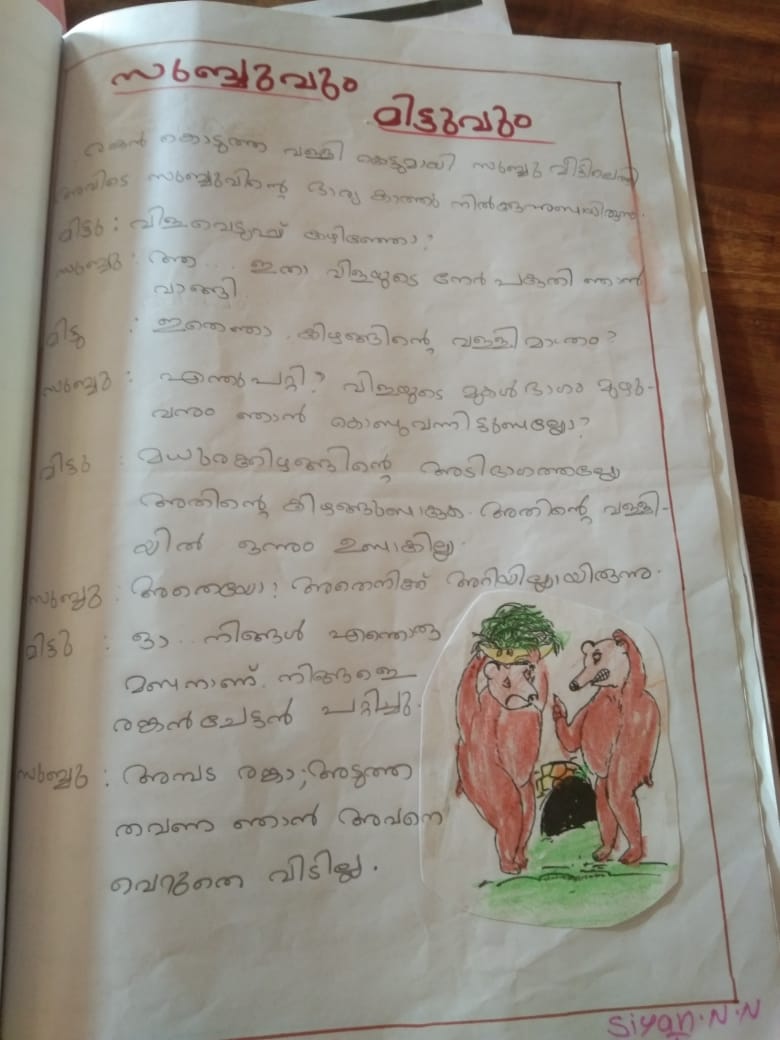 സുബ്ബുവും
മിട്ടുവും
രങ്കൻ കൊടുത്ത വള്ളി കെട്ടുമായി സുബ്ബു വീട്ടിലെത്തി
അവിടെ സുബ്ബുവിന്റെ ഭാര്യ കാത്തു നിൽക്കുന്നുണ്ടായിരുന്നു.
മിട്ടു : വിളവെടുപ്പ് കഴിഞ്ഞോ?
സുബ്ബു : ആ... ഇതാ വിളയുടെ നേർ പകുതി ഞാൻ
വാങ്ങി.
മിട്ടു : ഇതെന്താ കിഴങ്ങിന്റെ വള്ളി മാത്രം?
സുബ്ബു : എന്തുപറ്റി? വിളയുടെ മുകൾ ഭാഗം മുഴു-
വനും ഞാൻ കൊണ്ടുവന്നിട്ടുണ്ടല്ലോ?
മിട്ടു : മധുരക്കിഴങ്ങിന്റെ അടിഭാഗത്തല്ലേ
അതിന്റെ കിഴങ്ങുണ്ടാകുക. അതിന്റെ വള്ളി-
യിൽ ഒന്നും ഉണ്ടാകില്ല.
സുബ്ബു : അതെയോ! അതെനിക്ക് അറിയില്ലായിരുന്നു.
മിട്ടു : ഓ... നിങ്ങൾ എന്തൊരു
മണ്ടനാണ്. നിങ്ങളെ
രങ്കൻചേട്ടൻ പറ്റിച്ചു.
സുബ്ബു : അമ്പട രങ്കാ; അടുത്ത
തവണ ഞാൻ അവനെ
വെറുതെ വിടില്ല.
Siyan.N.N